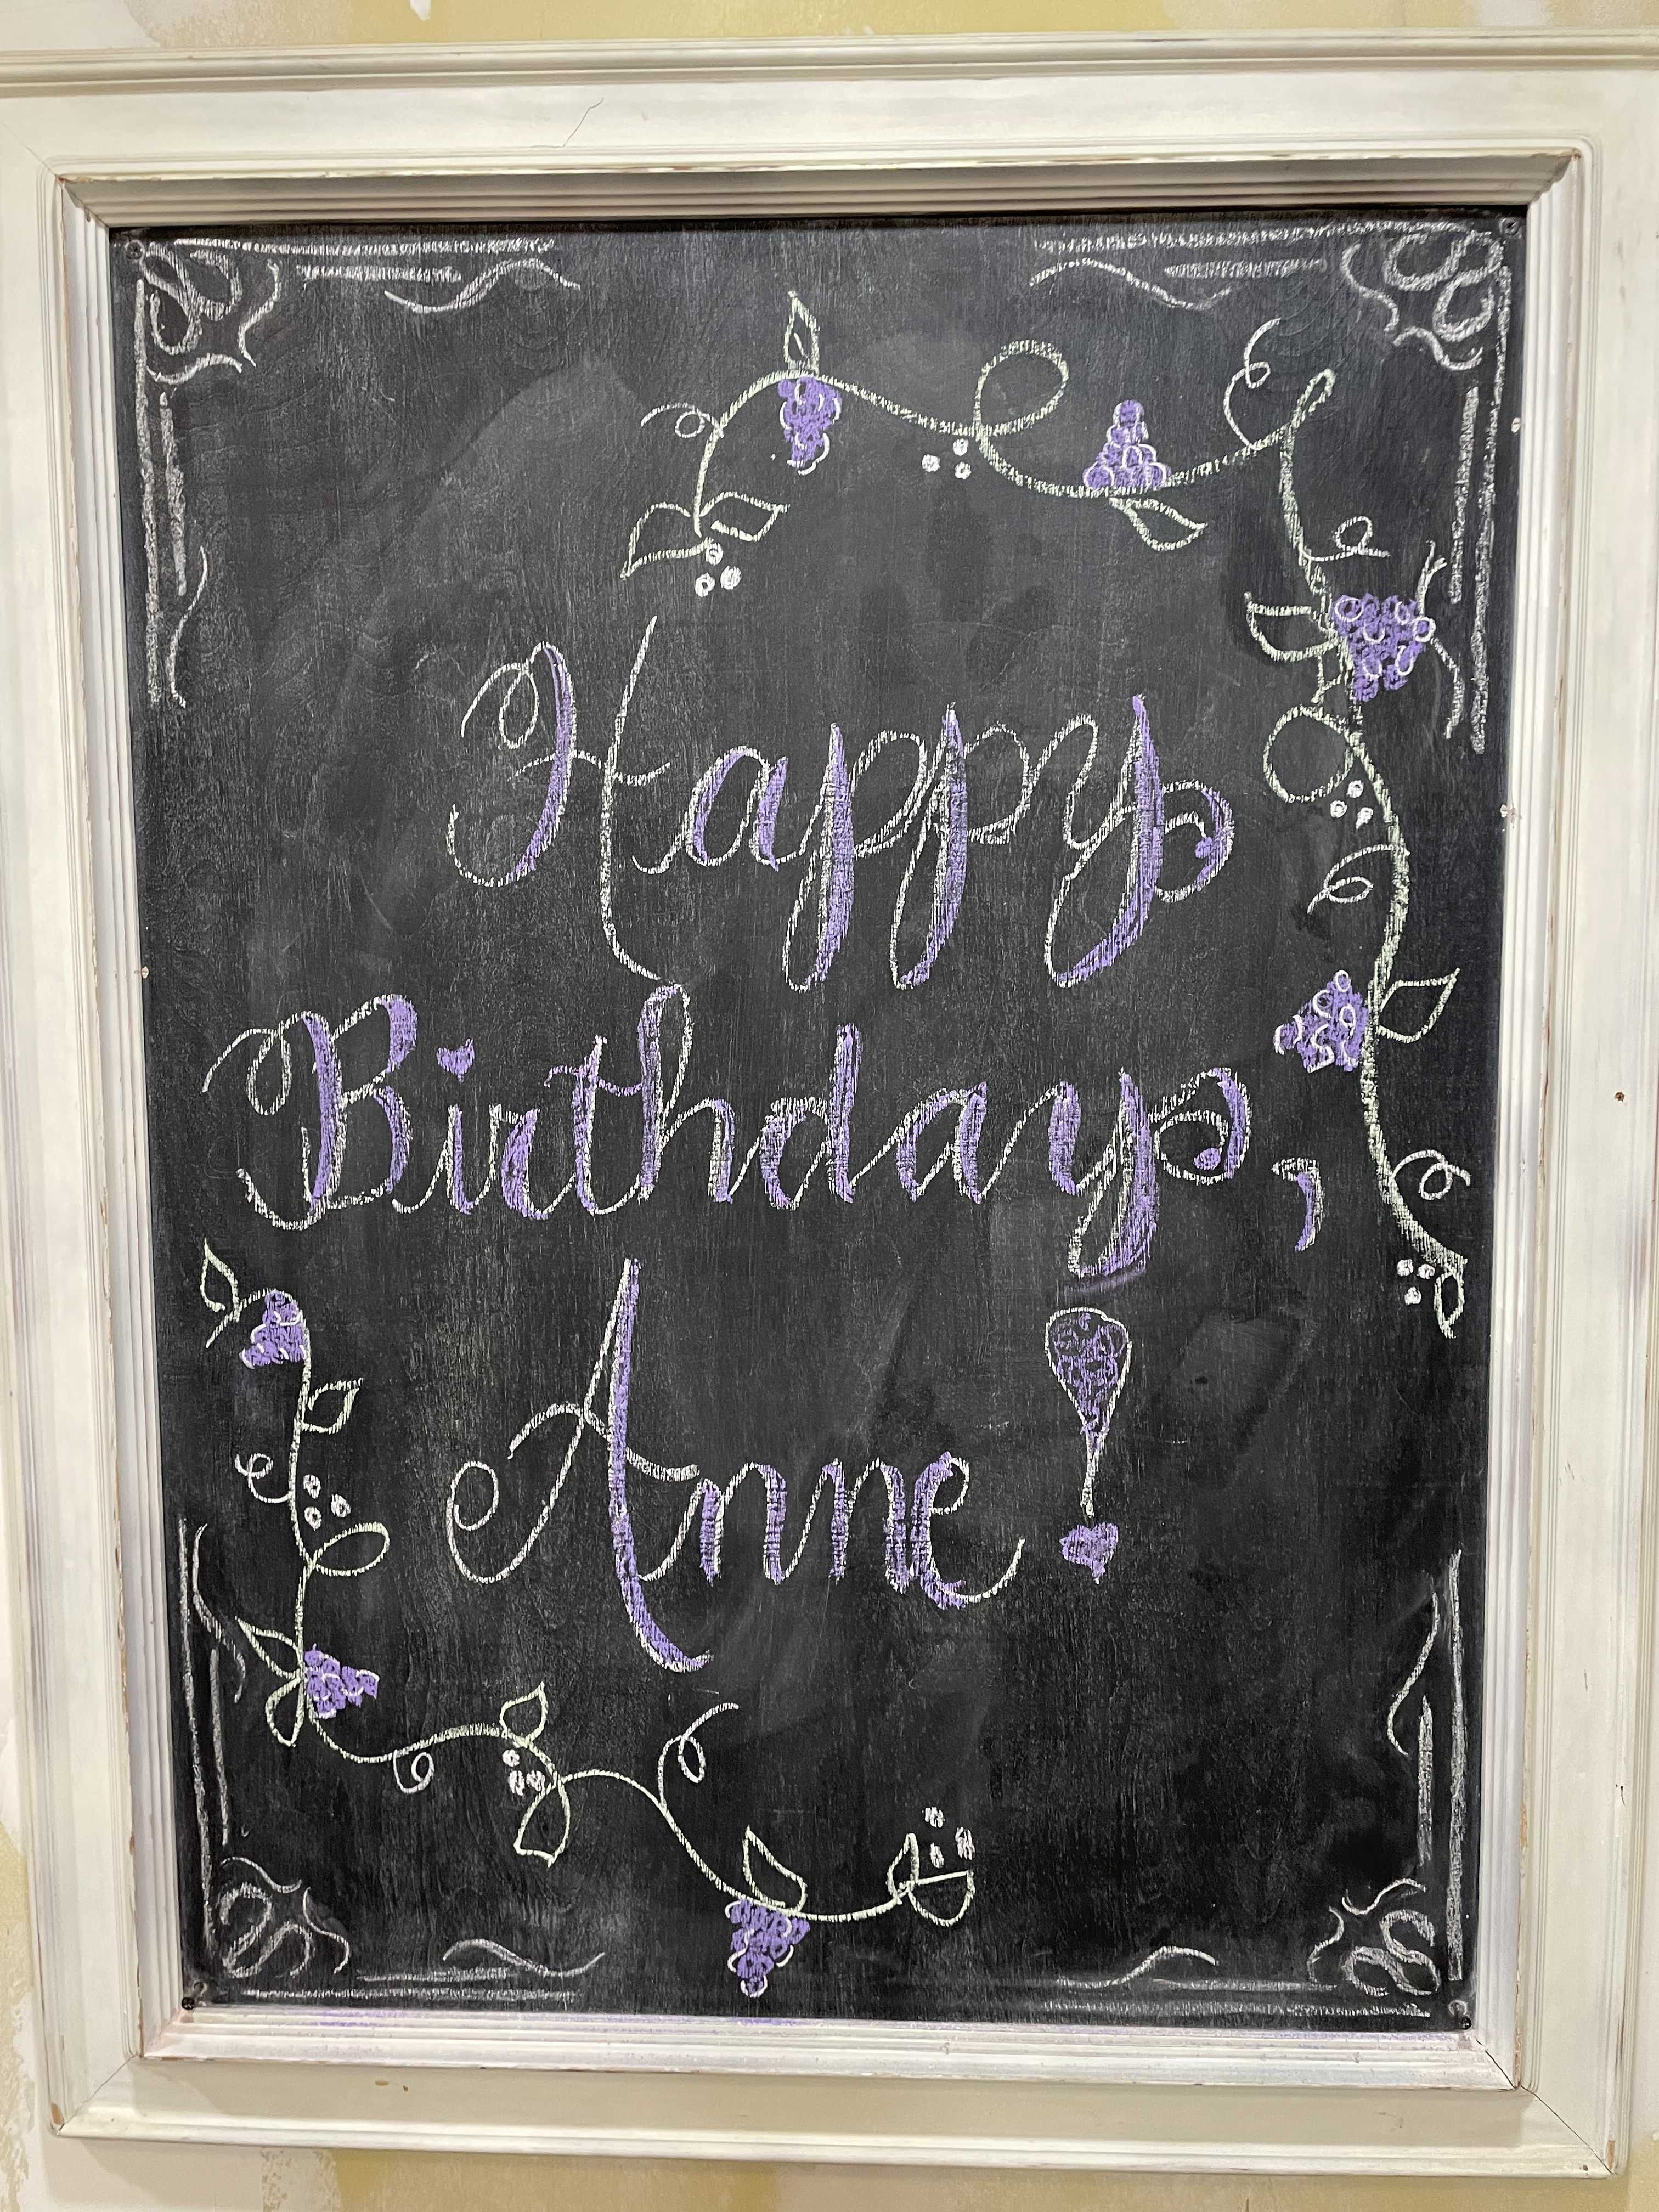 Happy
Birthday,
Anne!